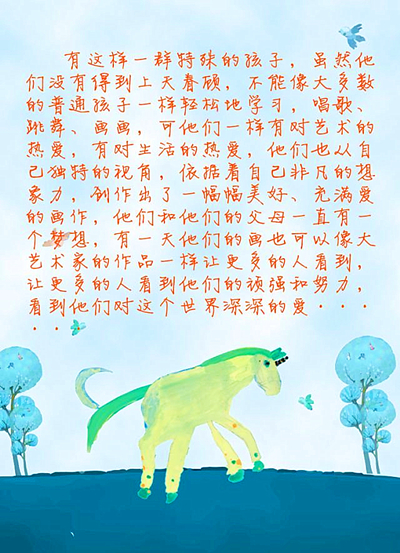 有这样一群特殊的孩子，虽然他
们没有得到上天眷顾，不能像大多数
的普通孩子一样轻松地学习，唱歌、
跳舞、画画，可他们一样有对艺术的
热爱，有对生活的热爱，他们也从自
己独特的视角，依据着自己非凡的想
象力，创作出了一幅幅美好、充满爱
的画作，他们和他们的父母一直有一
个梦想，有一天他们的画也可以像大
艺术家的作品一样让更多的人看到，
让更多的人看到他们的顽强和努力，
看到他们对这个世界深深的爱···
···